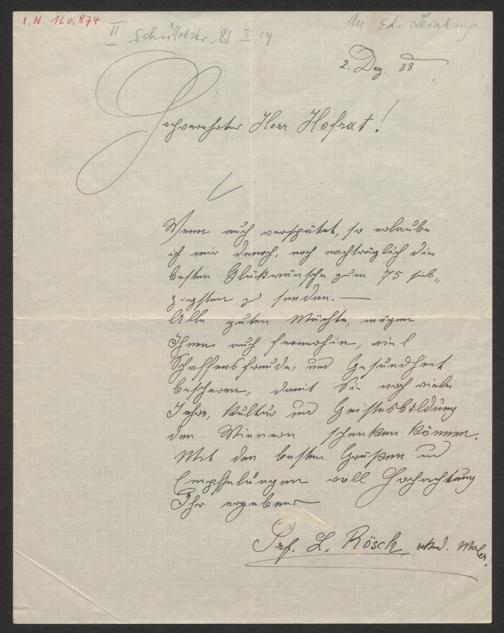 I.N 160.874
II Schüttelstr. 81 I 19
An Ed.
2. Dez. 38
Hochverehrter Herr Hofrat!
Wenn auch verspätet, so erlaube
ich mir denoch, noch nachträglich die
besten Glückwünsche zum 75 sieb„
zigsten zu senden. —
Alle guten Mächte, mögen
Ihnen auch fernerhin, viel
Schaffensfreude, und Gesundheit
bescheren, damit Sie noch viele
Jahre, Kultur und Geistesbildung
den Wienern schenken können.
Mit den besten Grüßen und
Empfehlungen voll Hochachtung
Ihr ergebener
Prof. L. Rösch akad. Maler.